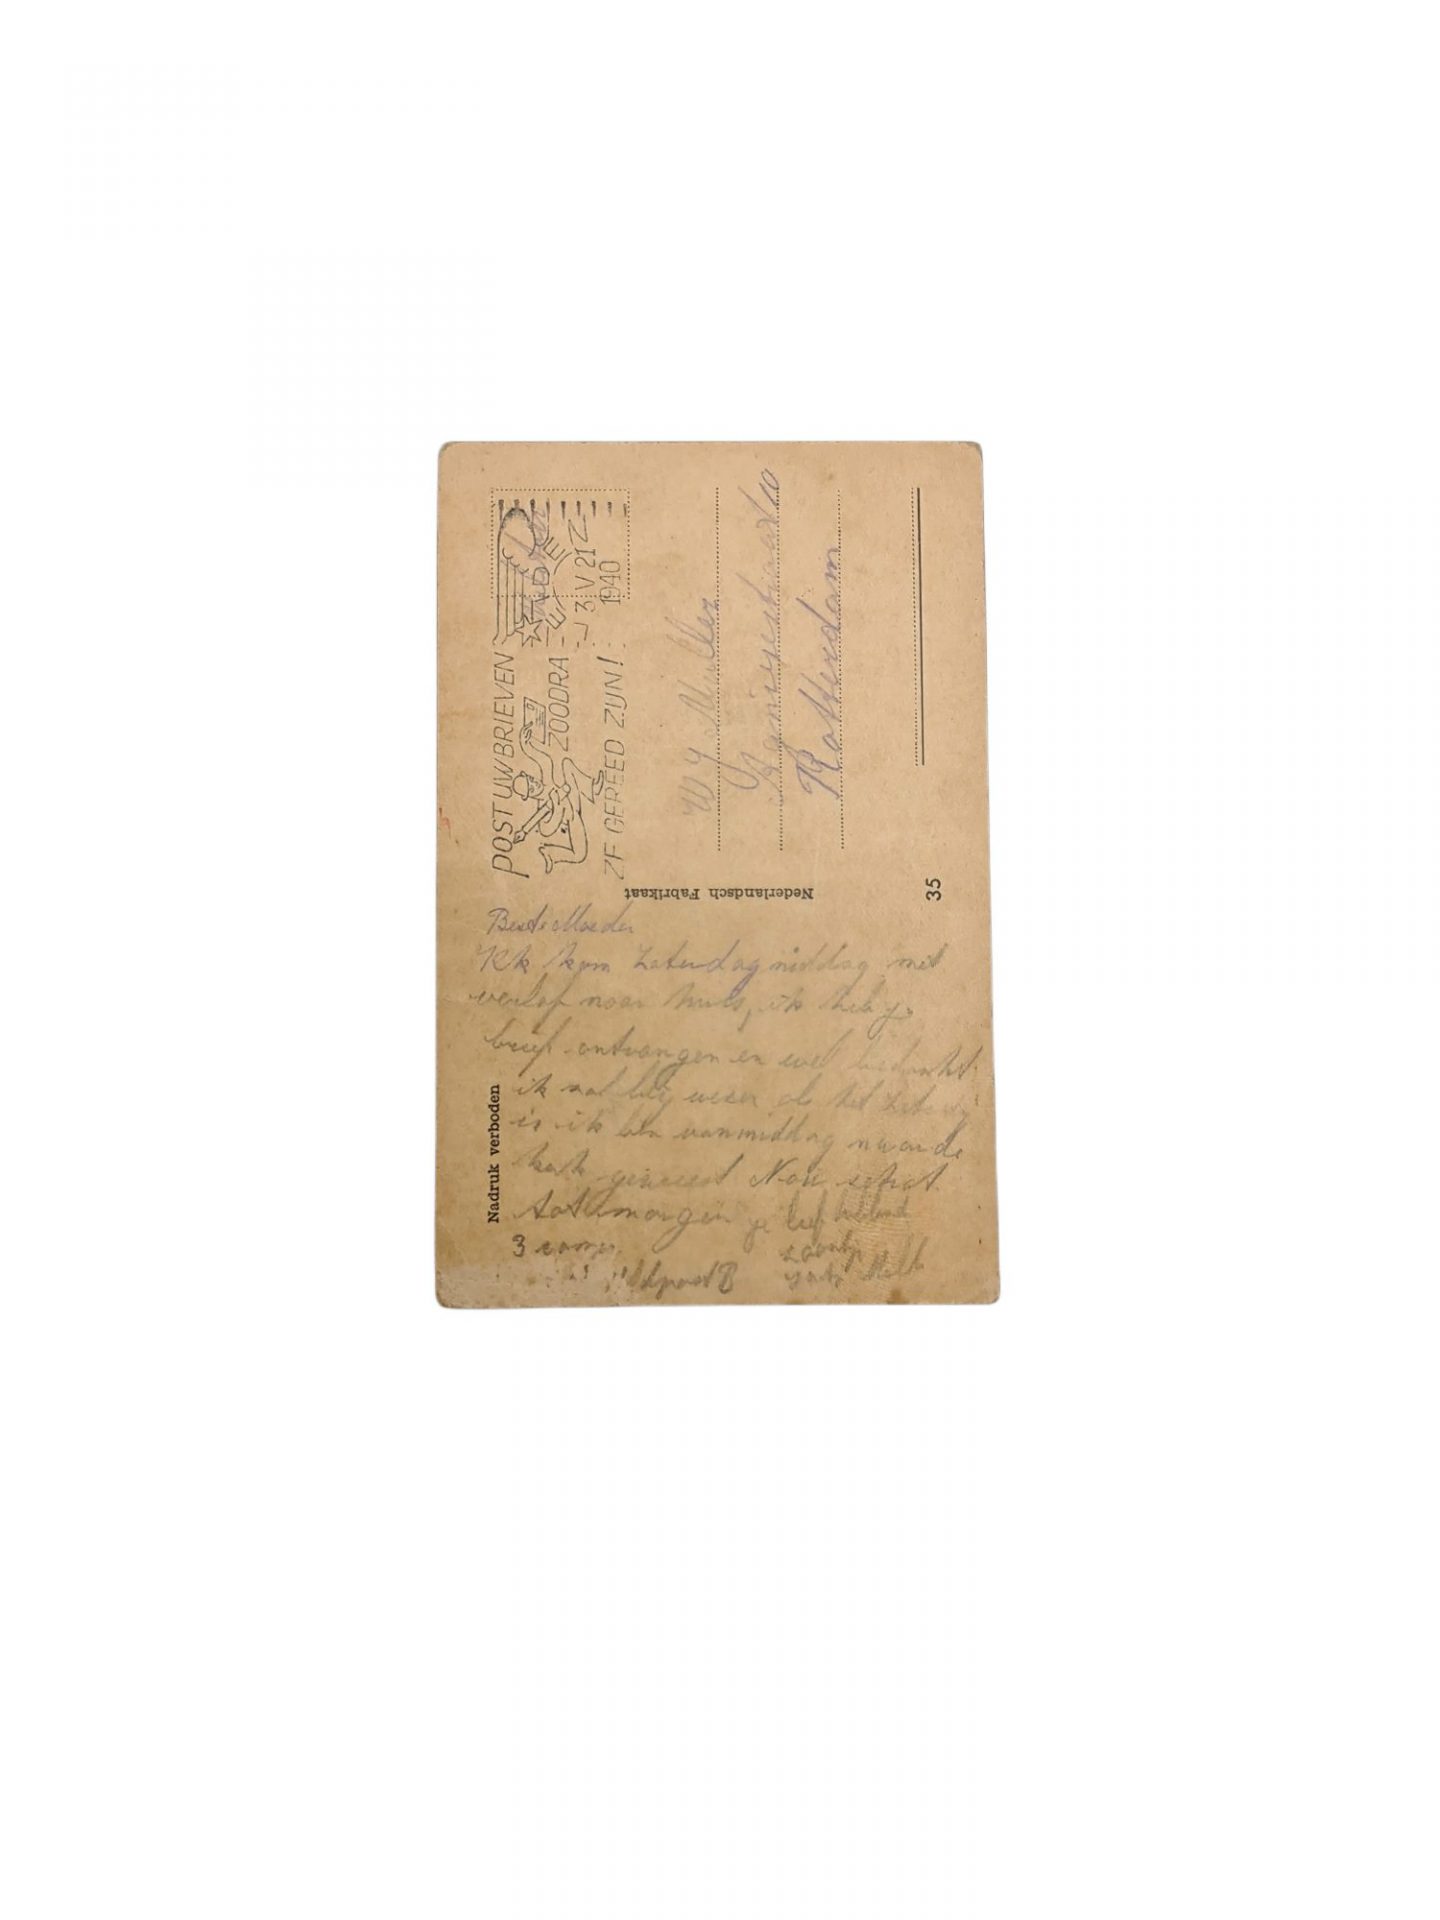 POST UW BRIEVEN
ZOODRA
ZE GEREED ZIJN!
3 V 21
1940
W J Muller
10
Rotterdam
Nederlandsch Fabrikaat
35
Nadruk verboden
Beste Moeder
Ik kom Zaterdag middag met
verlof naar huis, ik heb je
brief ontvangen en wel bedankt
ik zal blij wezen als het Zaterdag
is ik ben vanmiddag naar de
kerk geweest Nou schat
tot morgen je lief hebbend
zoontje
3 comp.
Veldpost B